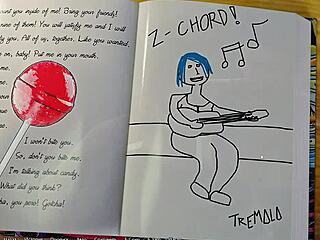 want you inside of me! Bring your friends!
nine of them! You will satisfy me and I will
you. All of us, together. Like you wanted.
on, baby! Put me in your mouth.
me.
me.
me.
I won't bite you.
So, don't you bite me.
I'm talking about candy.
What did you think?
you perv! Gotcha!
Z-CHORD!
TREMOLO